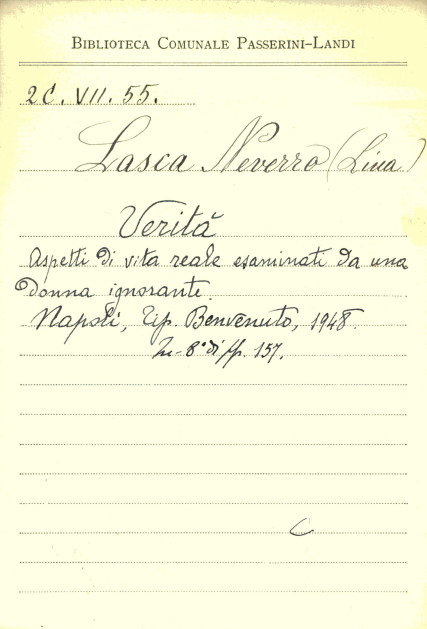 BIBLIOTECA COMUNALE PASSERINI-LANDI
2C. VII. 55.
Lasca Neverro (Lina)
Verità
Aspetti di vita reale esaminati da una
donna ignorante.
Napoli, Tip. Benvenuto, 1948.
In-8° di pp. 157.
C